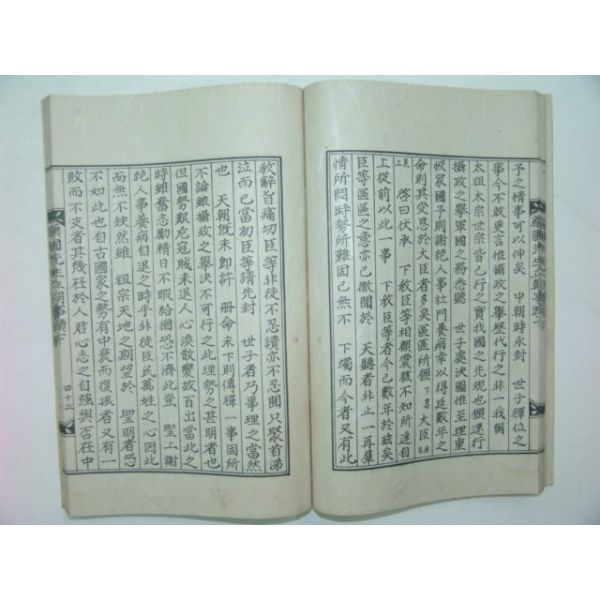 予之情事可以伸矣　中朝時永封　世子禪位之
事今不敢更言惟攝政之擧歷代行之非一我朝
太祖太宗世宗皆已行之實我國之先規也願速行
攝政之擧軍國之務悉聽　世子處決國雖至理重
恢家國予則謝絶人事杜門養病幸以得延數年之
命則其受恩於大臣者多矣區區所願
啓曰伏承　下敎臣等相顧震駭不知所達自
上從前以此一事　下敎臣等者今已數年於玆矣
臣等區區之意亦已徹聞於　天聽者非止一再羣
情所悶時勢所難固已無不　下燭而今者又有此
敎辭旨痛切臣等非徒不忍讀亦不忍聞只聚首涕
泣而已當初臣等請先封　世子者乃事理之當然
也　天朝旣未卽許　冊命未下則傳禪一事固所
不論雖攝政之擧決不可行之此理勢之甚明者也
但國勢艱危寇賊未退人心渙散變故百出當此之
時雖奮志勵精日不暇給猶恐不濟此豈　聖上謝
絶人事養病自退之時乎非徒臣民萬姓之心因此
而無不缺然雖　祖宗天地之期望於　聖明者恐
不如此也自古國家之勢有中衰而復振者又有一
敗而不支者其幾在於人君心志之自强與否在中
四十三